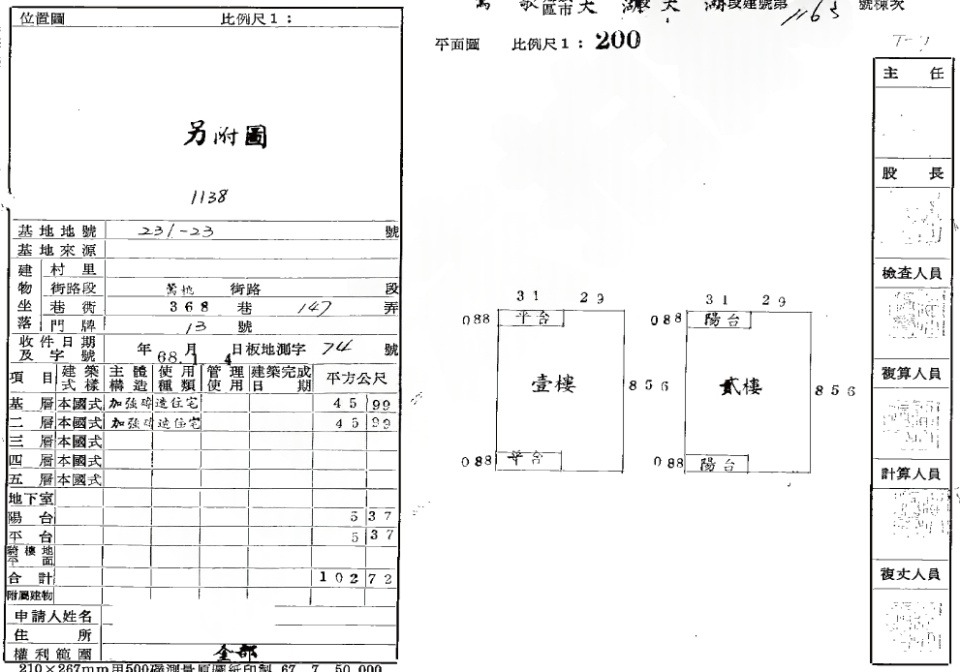 區市大 湖 段 大 湖 段建號第 1163 號棟次
位置圖 比例尺1：
平面圖 比例尺1：200
另附圖
1138
基地地號 231-23 號
基地來源
建物坐落
村里
街路段 鶯桃 街路 段
巷衖 368 巷 147 弄
門牌 13 號
收件日期及字號 年 68.1 月 4 日板地測字 74 號
項目 建築式樣 主體構造 使用種類 管理使用 建築完成日期 平方公尺
基層 本國式 加強磚造 住宅 45 99
二層 本國式 加強磚造 住宅 45 99
三層 本國式
四層 本國式
五層 本國式
地下室
陽台 5 37
平台 5 37
騎樓地平面
合計 102 72
附屬建物
申請人姓名
住所
權利範圍 全部
210×267mm用500磅測量原圖紙印製 67. 7. 50,000
31 29
088 平台
壹樓 856
088 平台
31 29
088 陽台
貳樓 856
088 陽台
主任
股長
檢查人員
複算人員
計算人員
複丈人員